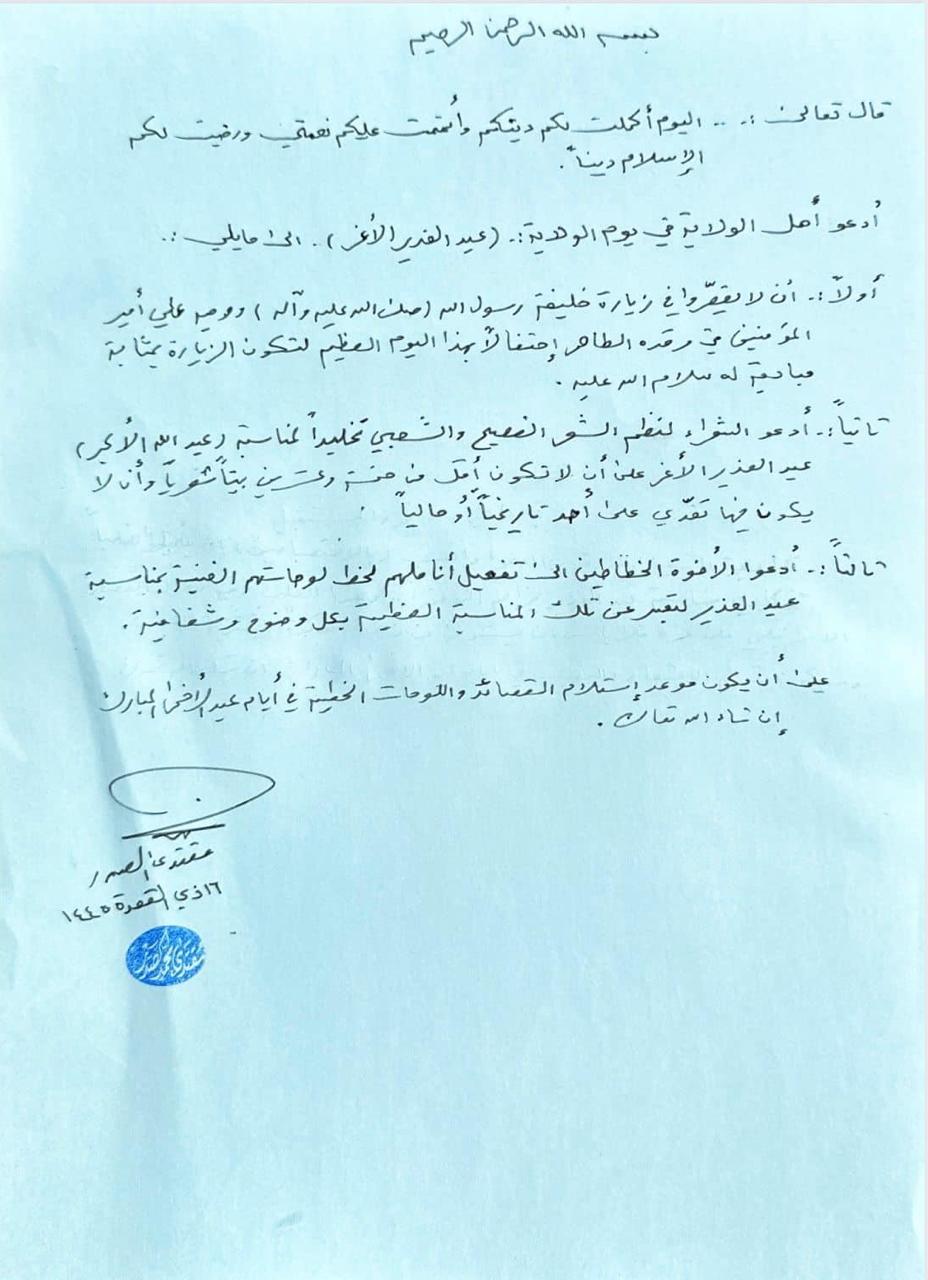 بسم الله الرحمن الرحيم
قال تعالى :. .. اليوم أكملت لكم دينكم وأتممت عليكم نعمتي ورضيت لكم
الإسلام ديناً .
أدعو أهل الولاية في يوم الولاية :. (عيد الغدير الأغر) . الى مايلي :.
أولاً :. أن لا يقصّروا في زيارة خليفة رسول الله (صلى الله عليه وآله) ووصيه علي أمير
المؤمنين في مرقده الطاهر إحتفالاً بهذا اليوم العظيم لتكون الزيارة بمثابة
مبايعة له سلام الله عليه .
ثانياً :. أدعو الشعراء لنظم الشعر الفصيح والشعبي تخليداً لمناسبة (عيد الله الأكبر)
عيد الغدير الأغر على أن لا تكون أقل من خمسة وعشرين بيتاً شعرياً وأن لا
يكون فيها تعدّي على أحد تاريخياً أو حالياً .
ثالثاً :. أدعوا الأخوة الخطاطين الى تفعيل أناملهم لخط لوحاتهم الفنية بمناسبة
عيد الغدير لتعبر عن تلك المناسبة العظيمة بكل وضوح وشفافية .
على أن يكون موعد إستلام القصائد واللوحات الخطية في أيام عيد الأضحى المبارك
إن شاء الله تعالى .
مقتدى الصدر
١٦ ذي القعدة ١٤٤٥
مقتدى محمد الصدر